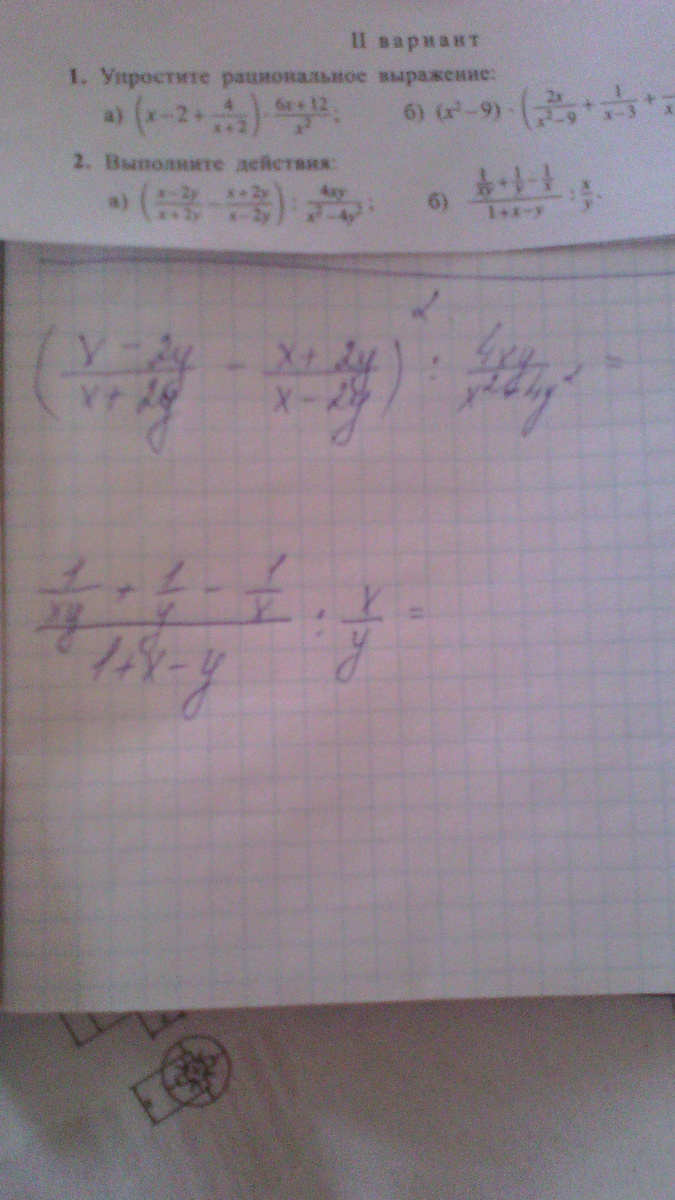 II вариант
1. Упростите рациональное выражение:
а) (x−2+4/(x+2))·(6x+12)/x²; б) (x²−9)·(2x/(x²−9)+1/(x−3)+
2. Выполните действия:
а) ((x−2y)/(x+2y)−(x+2y)/(x−2y)) : 4xy/(x²−4y²); б) (1/xy+1/y−1/x)/(1+x−y) : x/y.
((x−2y)/(x+2y) − (x+2y)/(x−2y)) : 4xy/(x² 4y²) =
(1/xy + 1/y − 1/x)/(1+x−y) : x/y =